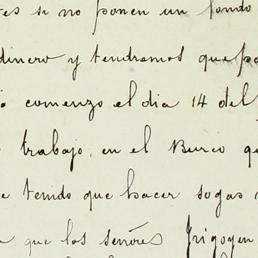 tes si no ponen un fondo
dinero y tendremos que pa
comenzo el dia 14 del
trabajo, en el Burco qu
e tenido que hacer sogas
que los señores Irigoyen